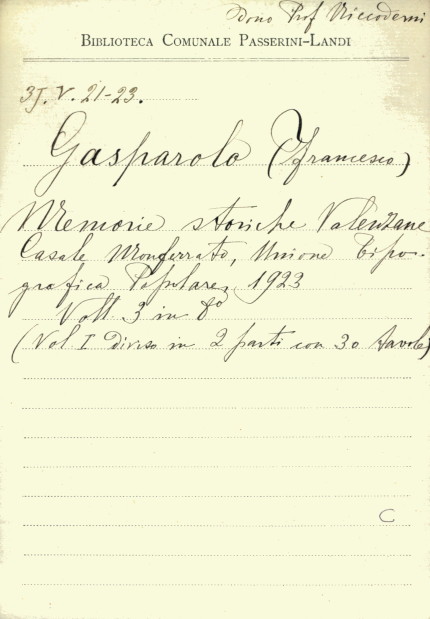 Dono Prof Niccodemi
BIBLIOTECA COMUNALE PASSERINI-LANDI
3J. V. 21-23.
Gasparolo (Francesco)
Memorie storiche Valenzane
Casale Monferrato, Unione Tipo-
grafica Popolare, 1923
Voll. 3 in 8º
(Vol I diviso in 2 parti con 30 tavole)
C